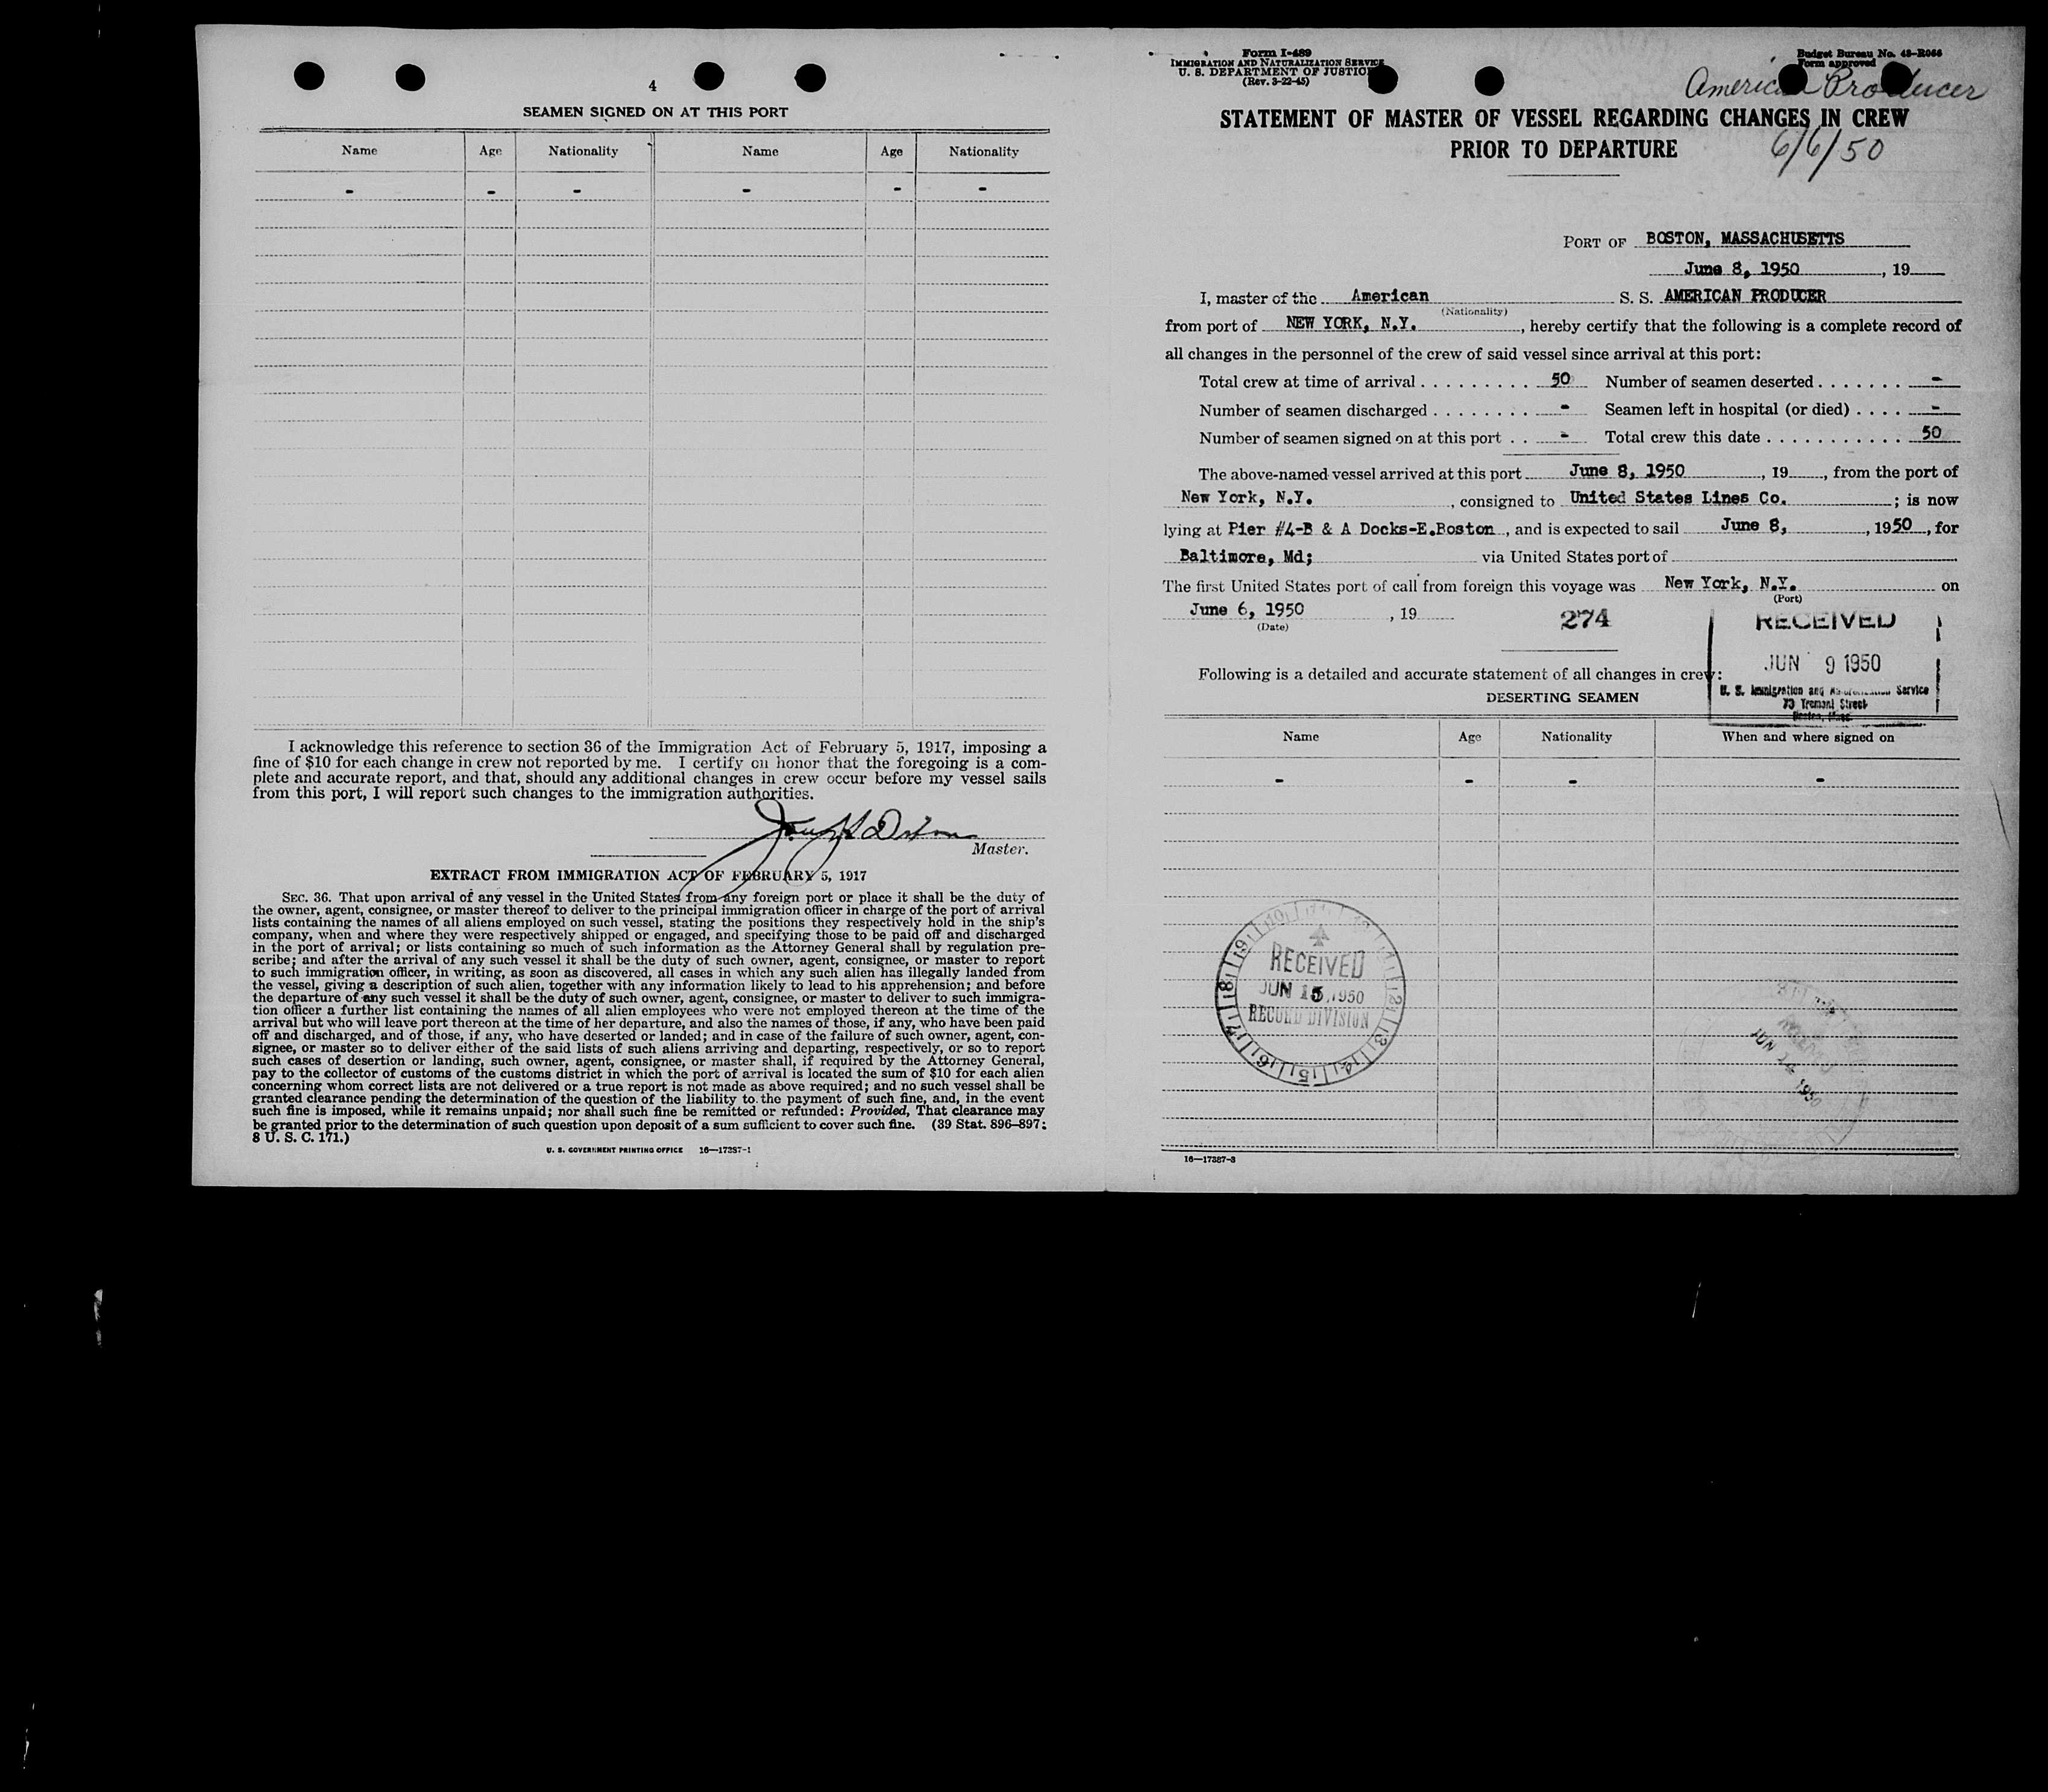 4
SEAMEN SIGNED ON AT THIS PORT
Name Age Nationality Name Age Nationality
- - - - - -
I acknowledge this reference to section 36 of the Immigration Act of February 5, 1917, imposing a
fine of $10 for each change in crew not reported by me. I certify on honor that the foregoing is a com-
plete and accurate report, and that, should any additional changes in crew occur before my vessel sails
from this port, I will report such changes to the immigration authorities.
Master.
EXTRACT FROM IMMIGRATION ACT OF FEBRUARY 5, 1917
SEC. 36. That upon arrival of any vessel in the United States from any foreign port or place it shall be the duty of
the owner, agent, consignee, or master thereof to deliver to the principal immigration officer in charge of the port of arrival
lists containing the names of all aliens employed on such vessel, stating the positions they respectively hold in the ship's
company, when and where they were respectively shipped or engaged, and specifying those to be paid off and discharged
in the port of arrival; or lists containing so much of such information as the Attorney General shall by regulation pre-
scribe; and after the arrival of any such vessel it shall be the duty of such owner, agent, consignee, or master to report
to such immigration officer, in writing, as soon as discovered, all cases in which any such alien has illegally landed from
the vessel, giving a description of such alien, together with any information likely to lead to his apprehension; and before
the departure of any such vessel it shall be the duty of such owner, agent, consignee, or master to deliver to such immigra-
tion officer a further list containing the names of all alien employees who were not employed thereon at the time of the
arrival but who will leave port thereon at the time of her departure, and also the names of those, if any, who have been paid
off and discharged, and of those, if any, who have deserted or landed; and in case of the failure of such owner, agent, con-
signee, or master so to deliver either of the said lists of such aliens arriving and departing, respectively, or so to report
such cases of desertion or landing, such owner, agent, consignee, or master shall, if required by the Attorney General,
pay to the collector of customs of the customs district in which the port of arrival is located the sum of $10 for each alien
concerning whom correct lists are not delivered or a true report is not made as above required; and no such vessel shall be
granted clearance pending the determination of the question of the liability to the payment of such fine, and, in the event
such fine is imposed, while it remains unpaid; nor shall such fine be remitted or refunded: Provided, That clearance may
be granted prior to the determination of such question upon deposit of a sum sufficient to cover such fine. (39 Stat. 896-897;
8 U. S. C. 171.)
U. S. GOVERNMENT PRINTING OFFICE 16—17387-1
Form I-489
IMMIGRATION AND NATURALIZATION SERVICE
U. S. DEPARTMENT OF JUSTICE
(Rev. 3-22-45)
Budget Bureau No. 43-R066
Form approved
American Producer
STATEMENT OF MASTER OF VESSEL REGARDING CHANGES IN CREW
PRIOR TO DEPARTURE
6/6/50
PORT OF BOSTON, MASSACHUSETTS
June 8, 1950, 19
I, master of the American S. S. AMERICAN PRODUCER
(Nationality)
from port of NEW YORK, N.Y., hereby certify that the following is a complete record of
all changes in the personnel of the crew of said vessel since arrival at this port:
Total crew at time of arrival . . . . . . . . . 50 Number of seamen deserted . . . . . . . -
Number of seamen discharged . . . . . . . . - Seamen left in hospital (or died) . . . . -
Number of seamen signed on at this port . . - Total crew this date . . . . . . . . . . . 50
The above-named vessel arrived at this port June 8, 1950, 19, from the port of
New York, N.Y., consigned to United States Lines Co.; is now
lying at Pier #4-B & A Docks-E.Boston, and is expected to sail June 8, 1950, for
Baltimore, Md; via United States port of
The first United States port of call from foreign this voyage was New York, N.Y. on
(Port)
June 6, 1950, 19
(Date)
274
RECEIVED
JUN 9 1950
U. S. Immigration and Naturalization Service
73 Tremont Street
Boston, Mass.
Following is a detailed and accurate statement of all changes in crew:
DESERTING SEAMEN
Name Age Nationality When and where signed on
- - - -
RECEIVED
JUN 15 1950
RECORD DIVISION
16—17387-3